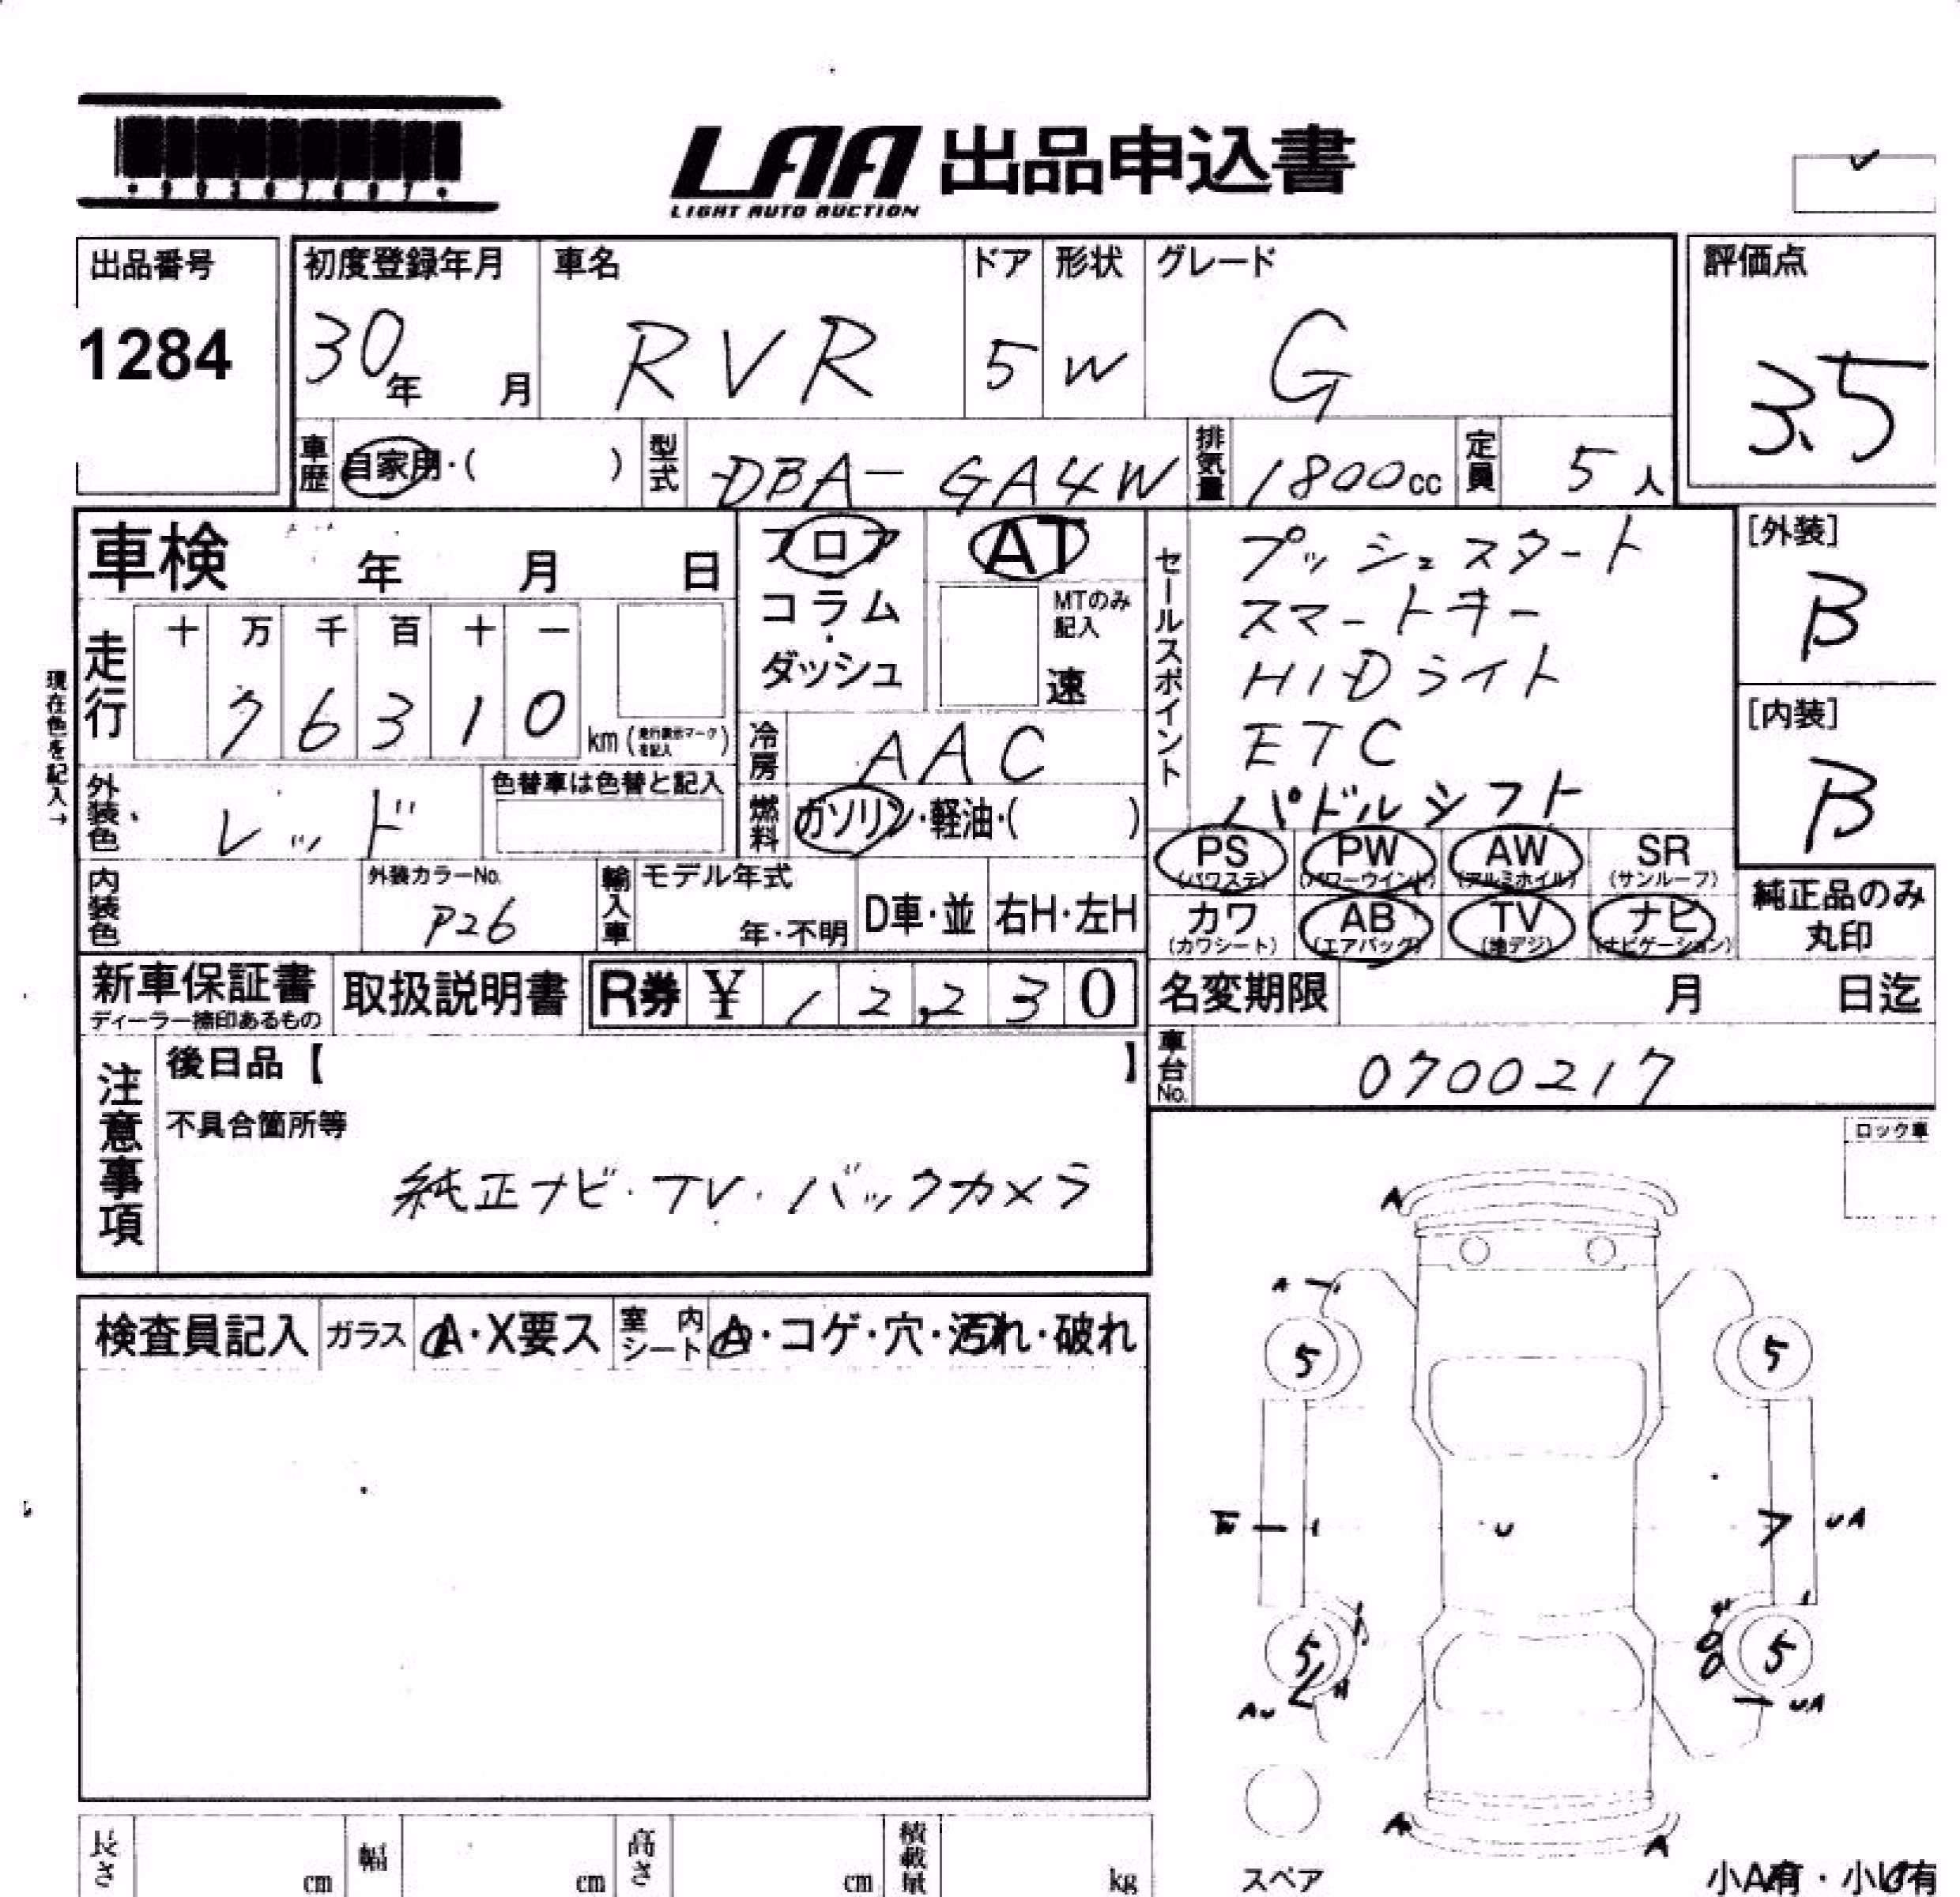 LAA 出品申込書
LIGHT AUTO AUCTION
出品番号 初度登録年月 車名 ドア 形状 グレード 評価点
1284 30年 月 RVR 5 W G 3.5
車歴 自家用・( ) 型式 DBA-GA4W 排気量 1800cc 定員 5人
車検 年 月 日
フロア コラム・ダッシュ
AT
MTのみ記入
速
セールスポイント
プッシュスタート
スマートキー
HIDライト
ETC
パドルシフト
[外装]
B
[内装]
B
現在色を記入→
走行 十 万 千 百 十 一
76310 km (走行表示マークを記入)
冷房 AAC
外装色 レッド 色替車は色替と記入
燃料 ガソリン・軽油・( )
PS (パワステ) PW (パワーウインド) AW (アルミホイル) SR (サンルーフ)
カワ (カワシート) AB (エアバック) TV (地デジ) ナビ (ナビゲーション)
純正品のみ丸印
内装色 外装カラーNo. P26 輸入車 モデル年式 年・不明 D車・並 右H・左H
新車保証書 ディーラー捺印あるもの 取扱説明書 R券 ¥ 12,230
名変期限 月 日迄
車台No. 0700217
注意事項
後日品【 】
不具合箇所等
純正ナビ・TV・バックカメラ
ロック車
検査員記入 ガラス A・X要ス 室内シート A・コゲ・穴・汚れ・破れ
A
A
5 5
U UA
5 5
AU UA
A A
長さ cm 幅 cm 高さ cm 積載量 kg
スペア
小A有・小U有